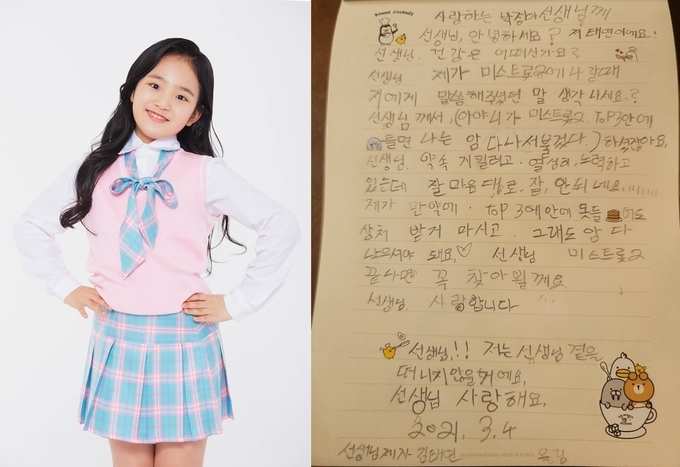 BONNE JOURNÉE
사랑하는 박정아 선생님께
선생님, 안녕하세요? 저 태연이에요!
선생님. 건강은 어떠신가요?
선생님 제가 미스트롯2에 나갈때
저에게 말씀해주셨던 말 생각나세요?
선생님께서, (아야 니가 미스트롯2. TOP3안에
들면 나는 암 다 나서불겄다.) 하셨잖아요.
선생님. 약속 지킬려고. 열심히 노력하고
있는데 잘 마음대로. 잘. 안되네요.
제가 만약에. TOP 3에 안에 못들 어도
상처 받거 마시고. 그래도 암 다
나으셔야 돼요, ♡ 선생님 미스트롯2
끝나면 꼭 찾아뵐께요
선생님, 사랑합니다
선생님!! 저는 선생님 곁을
떠나지않을거에요,
선생님 사랑해요,
2021. 3. 4
선생님제자 김태연 올림